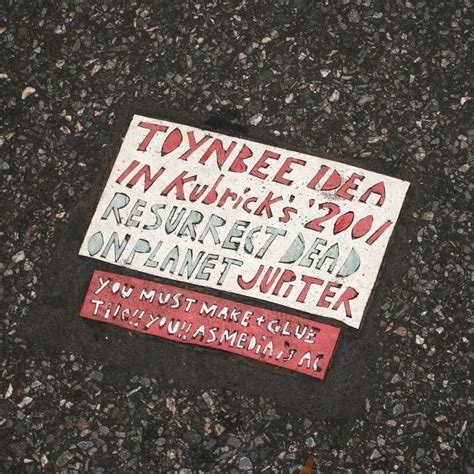 TOYNBEE IDEA
IN KubRick's '2001
RESURRECT DEAD
ON PLANET JUPITER
YOU MUST MAKE + GLUE
TILE!! YOU!! AS MEDIA